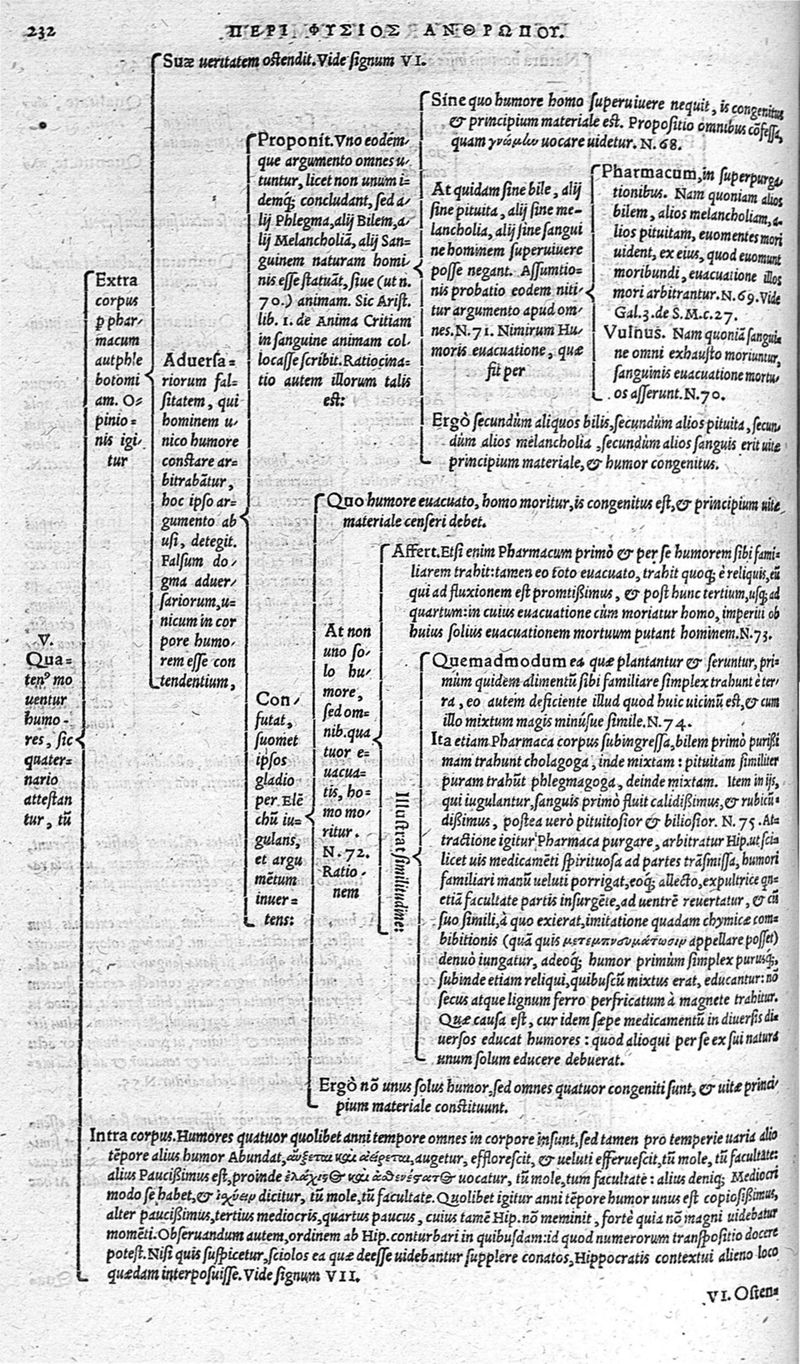 232
ΠΕΡΙ ΦΥΣΙΟΣ ΑΝΘΡΩΠΟΥ.
V.
Qua-
tenꝰ mo
uentur
humo-
res, sic
quater-
nario
attestan
tur, tū
Extra
corpus
ꝑ phar-
macum
aut phle
botomi
am. O-
pinio-
nis igi
tur
Suæ ueritatem ostendit. Vide signum VI.
Aduersa-
riorum fal-
sitatem, qui
hominem u-
nico humore
constare ar-
bitrabātur,
hoc ipso ar-
gumento ab
usi, detegit.
Falsum do-
gma aduer-
sariorum, u-
nicum in cor
pore humo-
rem esse con
tendentium,
Proponit. Vno eodém-
que argumento omnes u-
tuntur, licet non unum i-
demq; concludant, sed a-
lij Phlegma, alij Bilem, a-
lij Melancholiā, alij San-
guinem naturam homi-
nis esse statuāt, siue (ut n.
70.) animam. Sic Arist.
lib. 1. de Anima Critiam
in sanguine animam col-
locasse scribit. Ratiocina-
tio autem illorum talis
est:
Sine quo humore homo superuiuere nequit, is congenitus
& principium materiale est. Propositio omnibus cōfessa,
quam γνώμλω uocare uidetur. N. 68.
At quidam sine bile, alij
sine pituita, alij sine me-
lancholia, alij sine sangui
ne hominem superuiuere
posse negant. Assumtio-
nis probatio eodem niti-
tur argumento apud om-
nes. N. 71. Nimirum Hu-
moris euacuatione, quæ
fit per
Pharmacum, in superpurga-
tionibus. Nam quoniam alios
bilem, alios melancholiam, a-
lios pituitam, euomentes mori
uident, ex eius, quod euomunt
moribundi, euacuatione illos
mori arbitrantur. N. 69. Vide
Gal. 3. de S. M. c. 27.
Vulnus. Nam quoniā sangui
ne omni exhausto moriuntur,
sanguinis euacuatione mortu-
os asserunt. N. 70.
Ergò secundùm aliquos bilis, secundùm alios pituita, secun-
dùm alios melancholia, secundùm alios sanguis erit uitæ
principium materiale, & humor congenitus.
Con-
futat,
suomet
ipsos
gladio
per Elē
chū iu-
gulans,
et argu
mētum
inuer-
tens:
Quo humore euacuato, homo moritur, is congenitus est, & principium uitæ
materiale censeri debet.
At non
uno so-
lo hu-
more,
sed om-
nib. qua
tuor e-
uacua-
tis, ho-
mo mo-
ritur.
N. 72.
Ratio-
nem
Affert. Etsi enim Pharmacum primò & per se humorem sibi fami-
liarem trahit: tamen eo toto euacuato, trahit quoq; è reliquis, eū
qui ad fluxionem est promtißimus, & post hunc tertium, usq; ad
quartum: in cuius euacuatione cùm moriatur homo, imperiti ob
huius solius euacuationem mortuum putant hominem. N. 73.
Illustrat similitudine:
Quemadmodum ea quæ plantantur & seruntur, pri-
mùm quidem alimentū sibi familiare simplex trahunt è ter-
ra, eo autem deficiente illud quod huic uicinū est, & cum
illo mixtum magis minúsue simile. N. 74.
Ita etiam Pharmaca corpus subingressa, bilem primò purißi
mam trahunt cholagoga, inde mixtam: pituitam similiter
puram trahūt phlegmagoga, deinde mixtam. Item in ijs,
qui iugulantur, sanguis primò fluit calidißimus, & rubicū-
dißimus, postea uerò pituitosior & biliosior. N. 75. At-
tractione igitur Pharmaca purgare, arbitratur Hip. ut scia
licet uis medicamēti spirituosa ad partes trāsmissa, humori
familiari manū ueluti porrigat, eoq; allecto, expultrice qn-
etiā facultate partis insurgēte, ad uentrē reuertatur, & cū
suo simili, à quo exierat, imitatione quadam chymicæ com-
bibitionis (quā quis μετεμπνσυμάτωσιν appellare posset)
denuò iungatur, adeoq; humor primùm simplex purusq;,
subinde etiam reliqui, quibuscū mixtus erat, educantur: nō
secus atque lignum ferro perfricatum à magnete trahitur.
Quæ causa est, cur idem sæpe medicamentū in diuersis di-
uersos educat humores: quod alioqui per se ex sui natura
unum solum educere debuerat.
Ergò nō unus solus humor, sed omnes quatuor congeniti sunt, & uitæ princi-
pium materiale constituunt.
Intra corpus. Humores quatuor quolibet anni tempore omnes in corpore insunt, sed tamen pro temperie uaria alio
tēpore alius humor Abundat, αὔξεται καὶ αἴρεται, augetur, efflorescit, & ueluti efferuescit, tū mole, tū facultate:
alius Paucißimus est, proinde ἐλάχισος καὶ ἀσθενέστατος uocatur, tū mole, tum facultate: alius deniq; Mediocri
modo se habet, & ἰσχύειν dicitur, tū mole, tū facultate. Quolibet igitur anni tēpore humor unus est copiosißimus,
alter paucißimus, tertius mediocris, quartus paucus, cuius tamē Hip. nō meminit, fortè quia nō magni uidebatur
momēti. Obseruandum autem, ordinem ab Hip. conturbari in quibusdam: id quod numerorum transpositio docere
potest. Nisi quis suspicetur, sciolos ea quæ deesse uidebantur supplere conatos, Hippocratis contextui alieno loco
quædam interposuisse. Vide signum VII.
VI. Osten-